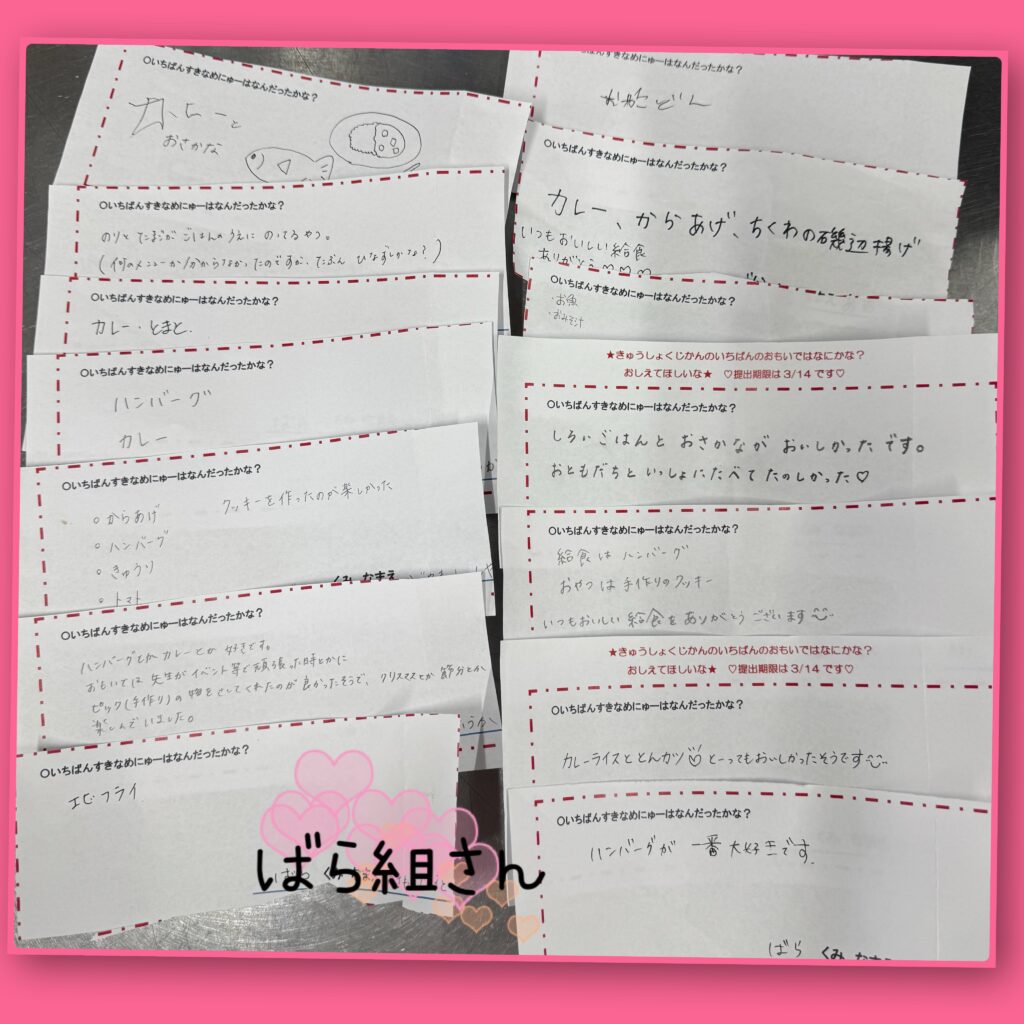 ○いちばんすきなめにゅーはなんだったかな？
カレーと
おさかな
○いちばんすきなめにゅーはなんだったかな？
のりと たまごが ごはんのうえに のってるやつ。
(何のメニューか分からなかったのですが、たぶん ひなずしかな？)
○いちばんすきなめにゅーはなんだったかな？
カレー・とまと.
○いちばんすきなめにゅーはなんだったかな？
ハンバーグ
カレー
○いちばんすきなめにゅーはなんだったかな？
○からあげ
クッキーを作ったのが楽しかった
○ハンバーグ
○きゅうり
○トマト
くみ なまえ
○いちばんすきなめにゅーはなんだったかな？
ハンバーグとか カレーとか 好きです。
おもいでは 先生がイベント等で頑張った時とかに
ピック(手作り)の物をさしてくれたのが良かったそうで、クリスマスとか 節分とか
楽しんでいました。
○いちばんすきなめにゅーはなんだったかな？
エビフライ
ばら組さん
○いちばんすきなめにゅーはなんだったかな？
おやこどん
○いちばんすきなめにゅーはなんだったかな？
カレー、からあげ、ちくわの磯辺揚げ
いつもおいしい給食
ありがとう♡♡♡
○いちばんすきなめにゅーはなんだったかな？
・お魚
・おみそ汁
★きゅうしょくじかんのいちばんのおもいではなにかな？
おしえてほしいな★ ♡提出期限は3/14です♡
○いちばんすきなめにゅーはなんだったかな？
しろいごはんと おさかなが おいしかったです。
おともだちと いっしょにたべて たのしかった♡
○いちばんすきなめにゅーはなんだったかな？
給食は ハンバーグ
おやつは 手作りのクッキー
いつもおいしい 給食を ありがとう ございます
★きゅうしょくじかんのいちばんのおもいではなにかな？
おしえてほしいな★ ♡提出期限は3/14です♡
○いちばんすきなめにゅーはなんだったかな？
カレーライスととんカツ♡とーってもおいしかったそうです
○いちばんすきなめにゅーはなんだったかな？
ハンバーグが 一番大好きです.
ばら くみ なまえ